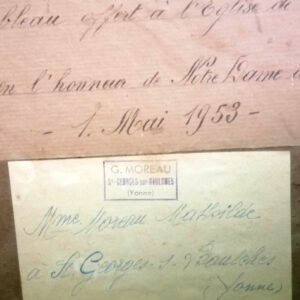 bleau offert à l'Eglise de
en l'honneur de Notre Dame
- 1. Mai 1953 -
G. MOREAU
St-GEORGES-sur-BAULCHES
(Yonne)
Mme Moreau Mathilde
à St Georges s. Baulches
(Yonne)